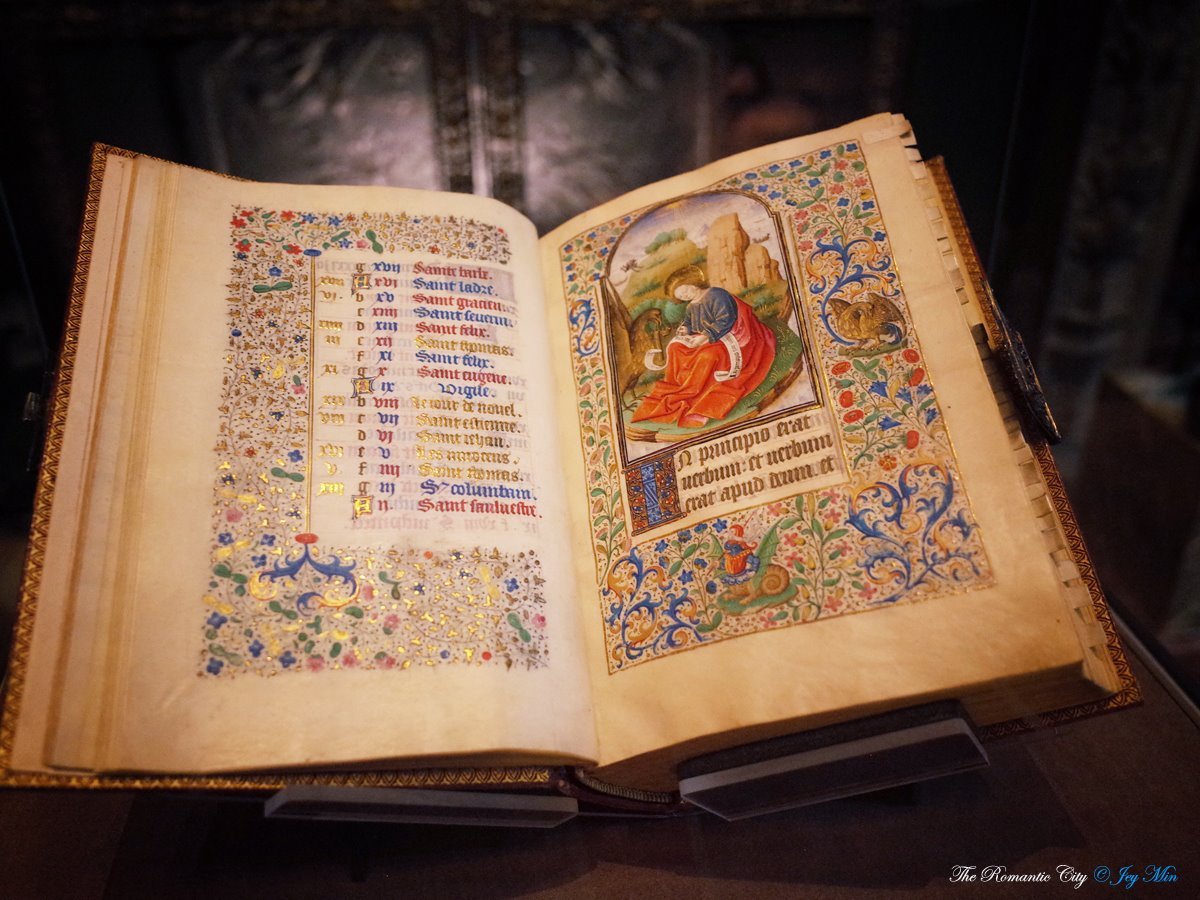 g xvij Sainte
A xvj Saint ladre.
vj. b xv Saint gracien.
c xiiij Saint severin.
d xiij Saint felix.
iij e xij Saint thomas.
f xi Saint felix.
xi. g x Saint eugene.
A ix Vigile.
xix b viij Le iour de nouel.
viij c vij Saint estienne.
d vj Saint iehan.
xvj e v Les innocens.
v. f iiij Saint thomas.
g iij Ste columbam.
A ij. Saint
IN principio erat
uerbum: et uerbum
erat apud deum. et
The Romantic City © Jey Min